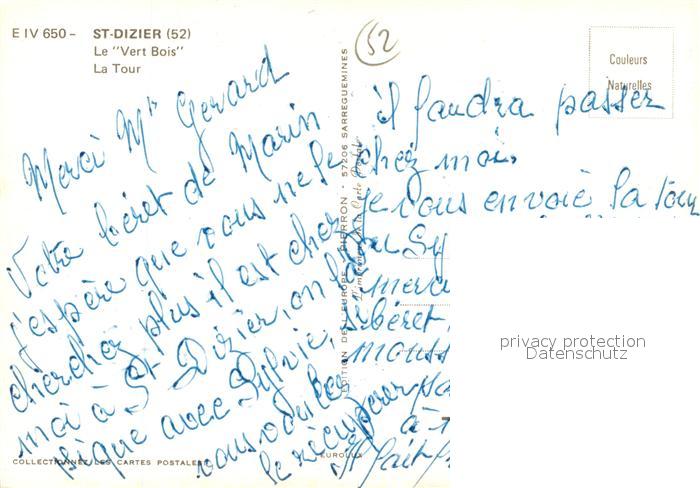 E IV 650 - ST-DIZIER (52)
Le "Vert Bois"
La Tour
52
Couleurs
Naturelles
Merci Mr Gerard
Votre béret de Marin
j'espère que vous ne le
cherchez plus il est chez
moi à St Dizier, on
pique avec Sylvie,
vous voulez
le récupérer
il faudra passer
chez moi.
je vous envoie la tour
du
merci
béret
à
il fait
EDITION DE L'EUROPE - PIERRON - 57206 SARREGUEMINES
COLLECTIONNEZ LES CARTES POSTALES
EUROLUX
privacy protection
Datenschutz